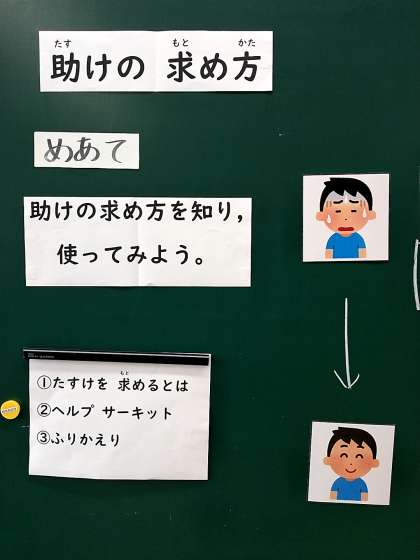 助けの 求め方
めあて
助けの求め方を知り，
使ってみよう。
①たすけを 求めるとは
②ヘルプ サーキット
③ふりかえり